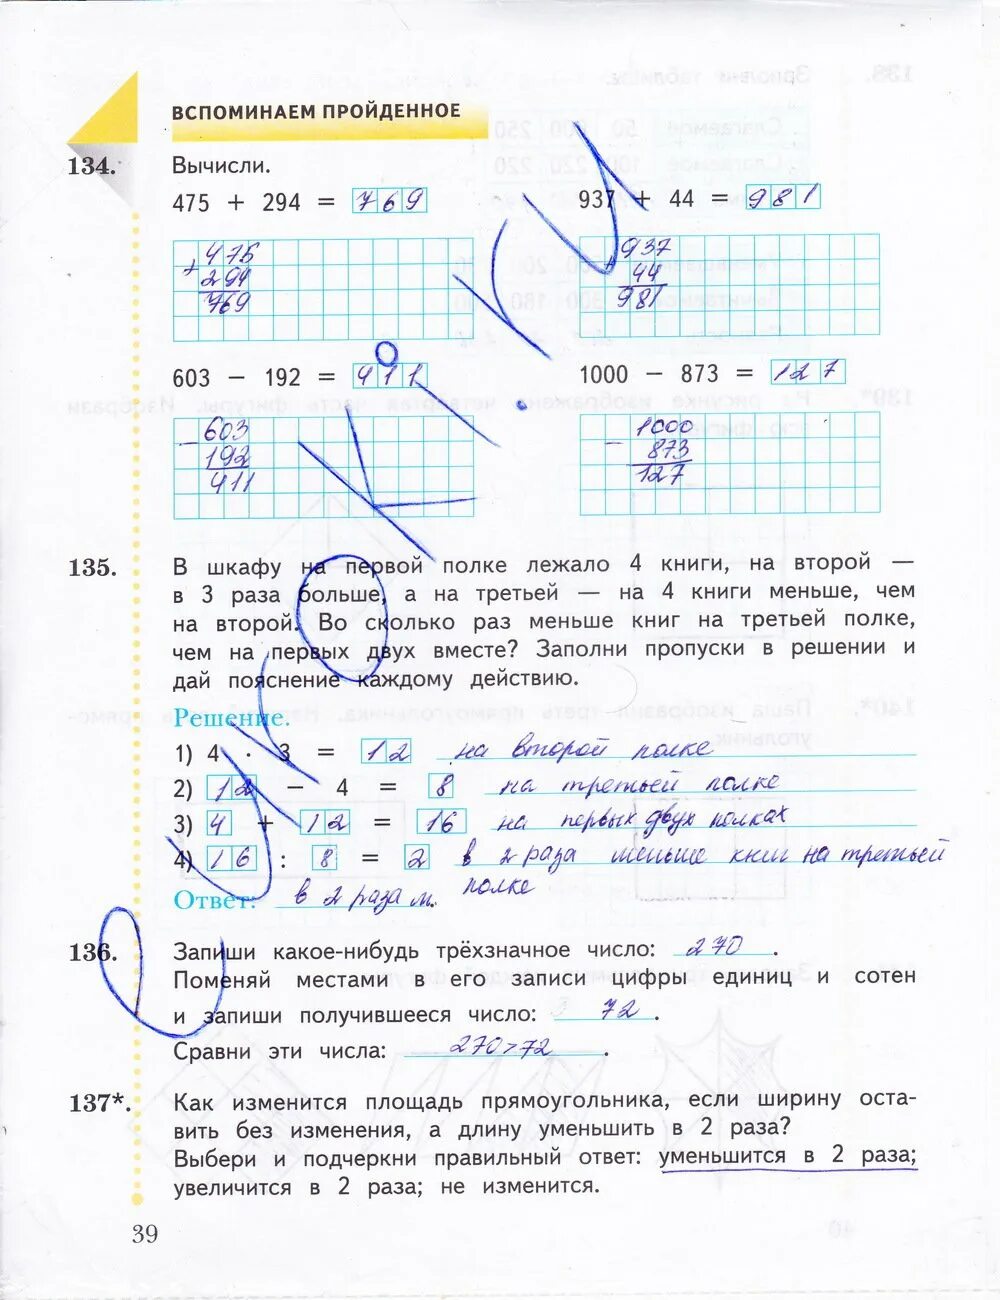 ВСПОМИНАЕМ ПРОЙДЕННОЕ
134. Вычисли.
475 + 294 = 769
937 + 44 = 981
+ 475
294
769
+ 937
44
981
603 − 192 = 411
1000 − 873 = 127
− 603
192
411
− 1000
873
127
135. В шкафу на первой полке лежало 4 книги, на второй —
в 3 раза больше, а на третьей — на 4 книги меньше, чем
на второй. Во сколько раз меньше книг на третьей полке,
чем на первых двух вместе? Заполни пропуски в решении и
дай пояснение каждому действию.
Решение.
1) 4 · 3 = 12 на второй полке
2) 12 − 4 = 8 на третьей полке
3) 4 + 12 = 16 на первых двух полках
4) 16 : 8 = 2 в 2 раза меньше книг на третьей
полке
Ответ: в 2 раза м.
136. Запиши какое-нибудь трёхзначное число: 270 .
Поменяй местами в его записи цифры единиц и сотен
и запиши получившееся число: 72 .
Сравни эти числа: 270>72 .
137*. Как изменится площадь прямоугольника, если ширину оста-
вить без изменения, а длину уменьшить в 2 раза?
Выбери и подчеркни правильный ответ: уменьшится в 2 раза;
увеличится в 2 раза; не изменится.
39